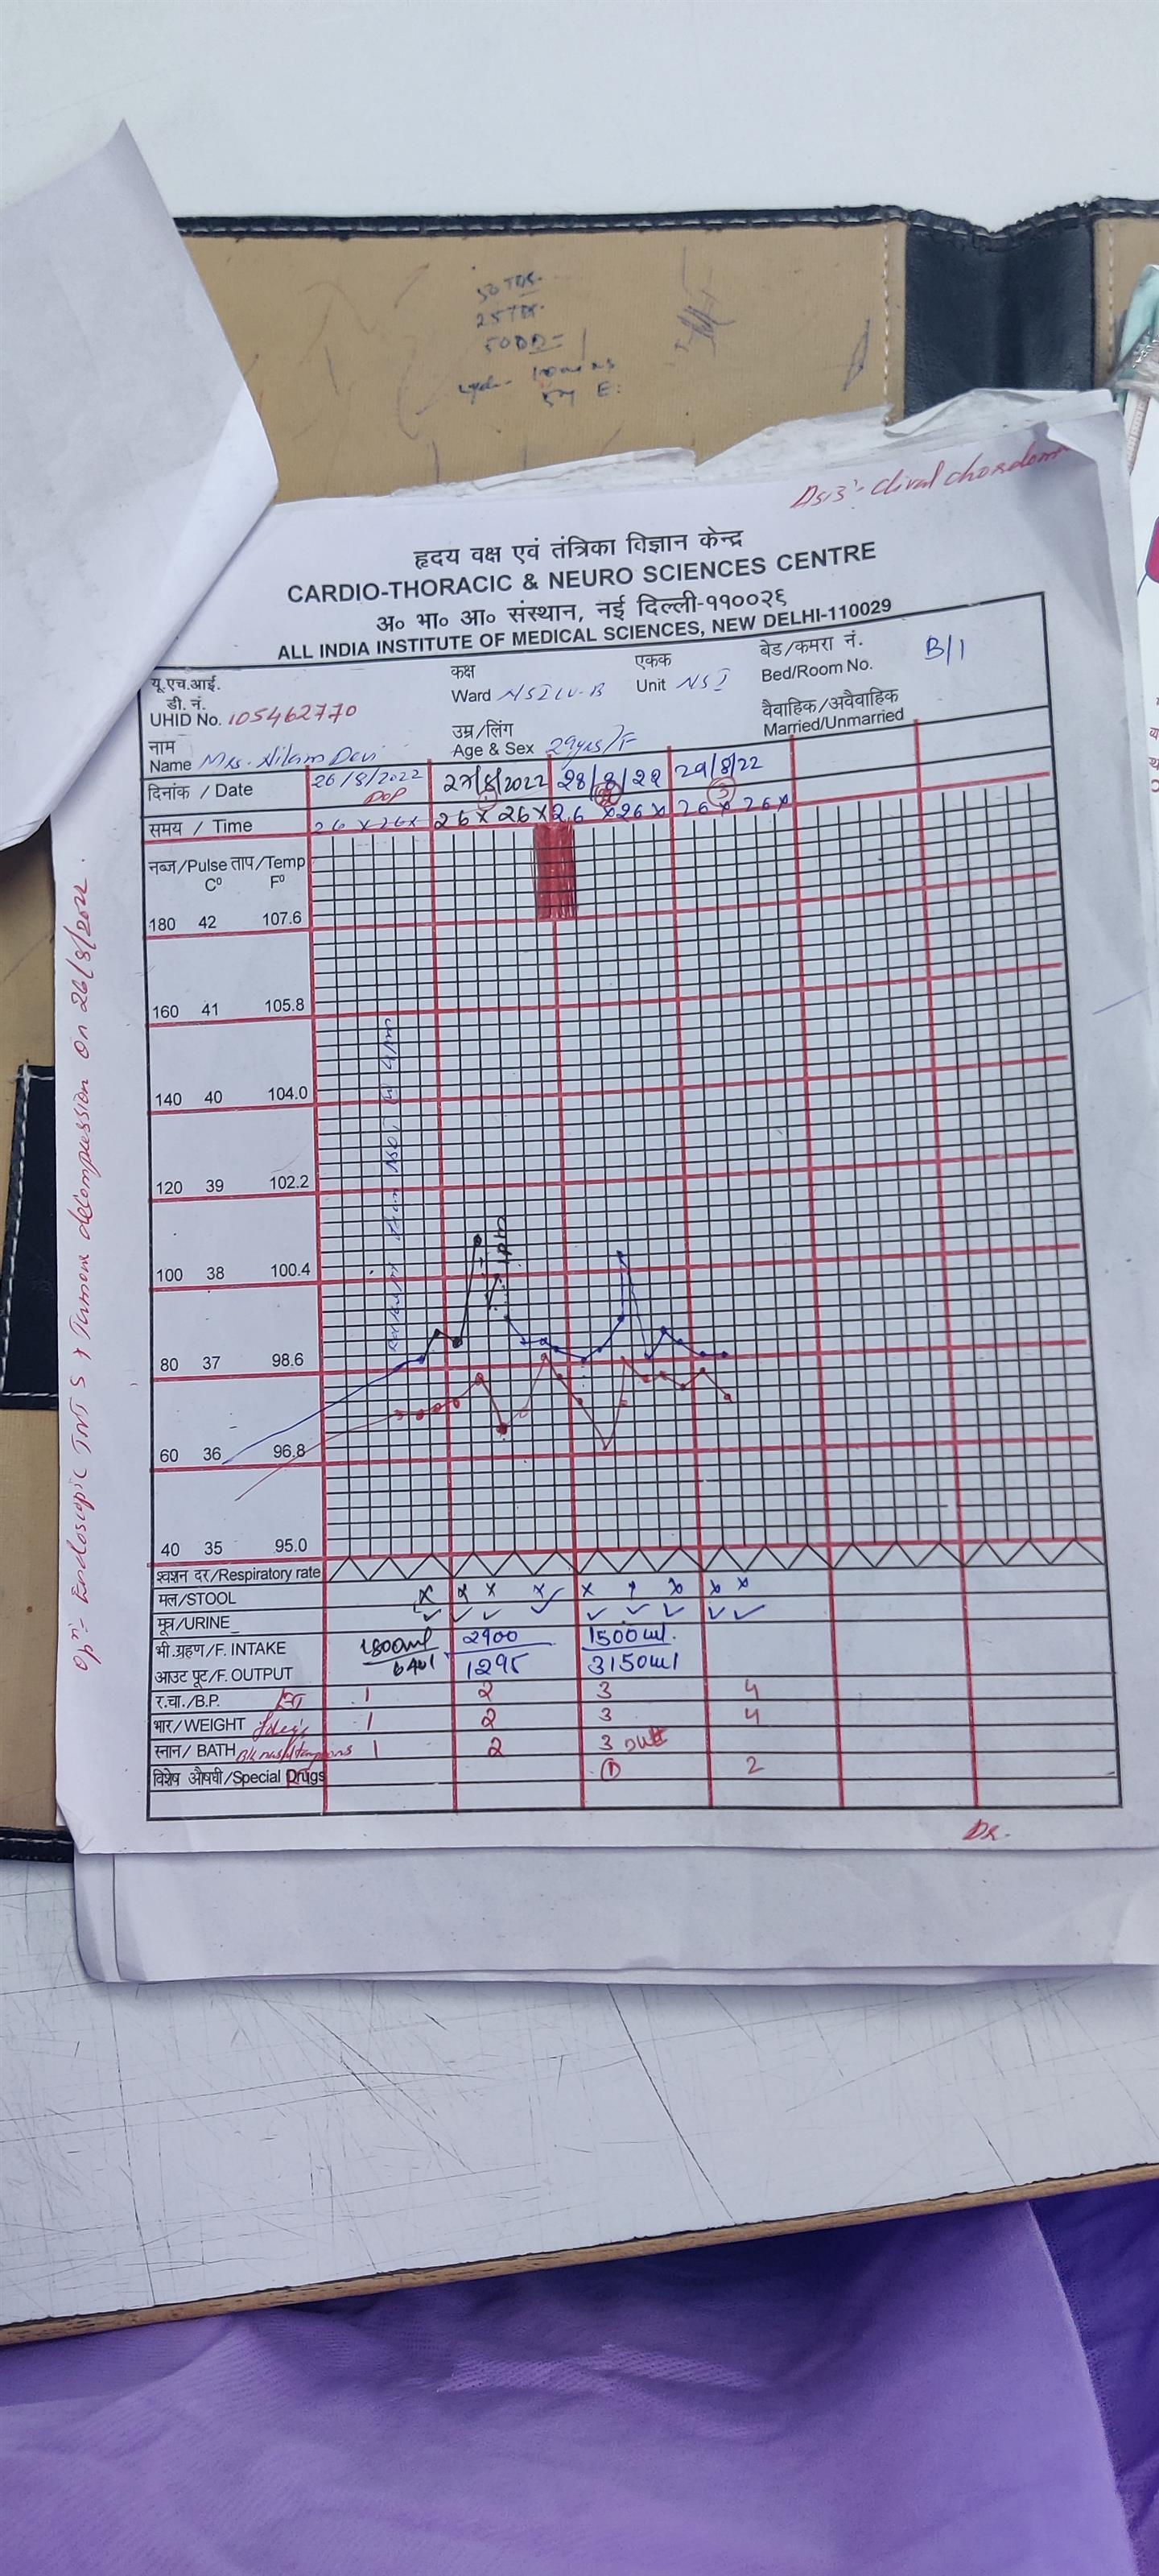 50 TDS.
25 TDS.
50 OD =
Dsis:- Clival chordom
हृदय वक्ष एवं तंत्रिका विज्ञान केन्द्र
CARDIO-THORACIC & NEURO SCIENCES CENTRE
अ० भा० आ० संस्थान, नई दिल्ली-११००२६
ALL INDIA INSTITUTE OF MEDICAL SCIENCES, NEW DELHI-110029
यू.एच.आई. डी. नं.
UHID No. 105462770
कक्ष
Ward NSICU-B
एकक
Unit NS I
बेड/कमरा नं.
Bed/Room No. B/1
नाम
Name Mrs. Nilam Devi
उम्र/लिंग
Age & Sex 29yrs/F
वैवाहिक/अवैवाहिक
Married/Unmarried
दिनांक / Date 26/8/2022 27/8/2022 28/8/22 29/8/22
DOP 1 2 3
समय / Time 26 x 26x 26x 26x 26 x 26x 26 x 26x
नब्ज/Pulse ताप/Temp
C⁰ F⁰
180 42 107.6
160 41 105.8
140 40 104.0
120 39 102.2
100 38 100.4
80 37 98.6
60 36 96.8
40 35 95.0
श्वशन दर/Respiratory rate
मल/STOOL x x x x x x x x
मूत्र/URINE ✓ ✓ ✓ ✓ ✓ ✓ ✓ ✓ ✓
भी.ग्रहण/F. INTAKE 1800ml 2900 1500 ml.
आउट पूट/F. OUTPUT 1295 3150ml
र.चा./B.P. 1 2 3 4
भार/WEIGHT Foley's 1 2 3 4
स्नान/ BATH 1 2 3
विशेष औषधी/Special Drugs 1 2
Dr.
Endoscopic TNTS & Tumour decompression on 26/8/2022.